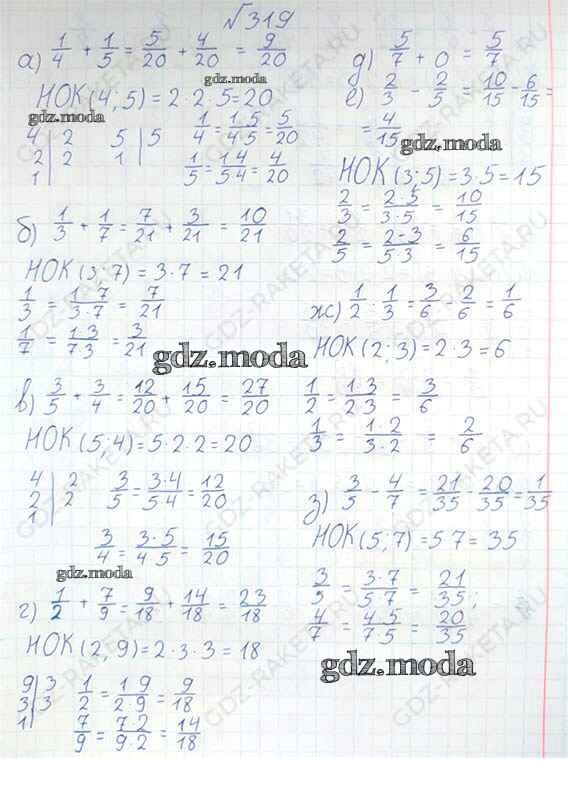 №319
а) 1/4 + 1/5 = 5/20 + 4/20 = 9/20
gdz.moda
НОК(4;5) = 2·2·5=20
4 | 2 5 | 5
2 | 2 1
1
1/4 = 1·5/4·5 = 5/20
1/5 = 1·4/5·4 = 4/20
gdz.moda
б) 1/3 + 1/7 = 7/21 + 3/21 = 10/21
НОК(3;7) = 3·7 = 21
1/3 = 1·7/3·7 = 7/21
1/7 = 1·3/7·3 = 3/21
gdz.moda
в) 3/5 + 3/4 = 12/20 + 15/20 = 27/20
НОК(5;4)=5·2·2=20
4 | 2
2 | 2
1
3/5 = 3·4/5·4 = 12/20
3/4 = 3·5/4·5 = 15/20
gdz.moda
г) 1/2 + 7/9 = 9/18 + 14/18 = 23/18
НОК(2,9)=2·3·3=18
9 | 3
3 | 3
1
1/2 = 1·9/2·9 = 9/18
7/9 = 7·2/9·2 = 14/18
д) 5/7 + 0 = 5/7
е) 2/3 - 2/5 = 10/15 - 6/15 =
= 4/15
gdz.moda
НОК(3;5)=3·5=15
2/3 = 2·5/3·5 = 10/15
2/5 = 2·3/5·3 = 6/15
ж) 1/2 - 1/3 = 3/6 - 2/6 = 1/6
НОК(2;3)=2·3=6
1/2 = 1·3/2·3 = 3/6
1/3 = 1·2/3·2 = 2/6
з) 3/5 - 4/7 = 21/35 - 20/35 = 1/35
НОК(5;7)=5·7=35
3/5 = 3·7/5·7 = 21/35;
4/7 = 4·5/7·5 = 20/35
gdz.moda
GDZ-RAKETA.RU